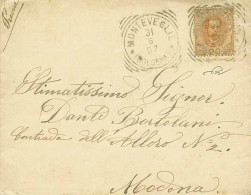 MONTEVEGLIO
31
97
(BOLOGNA)
Stimatissimo Signor
Dante Bortolani
Contrada dell'Alloro N. 2.
Modena